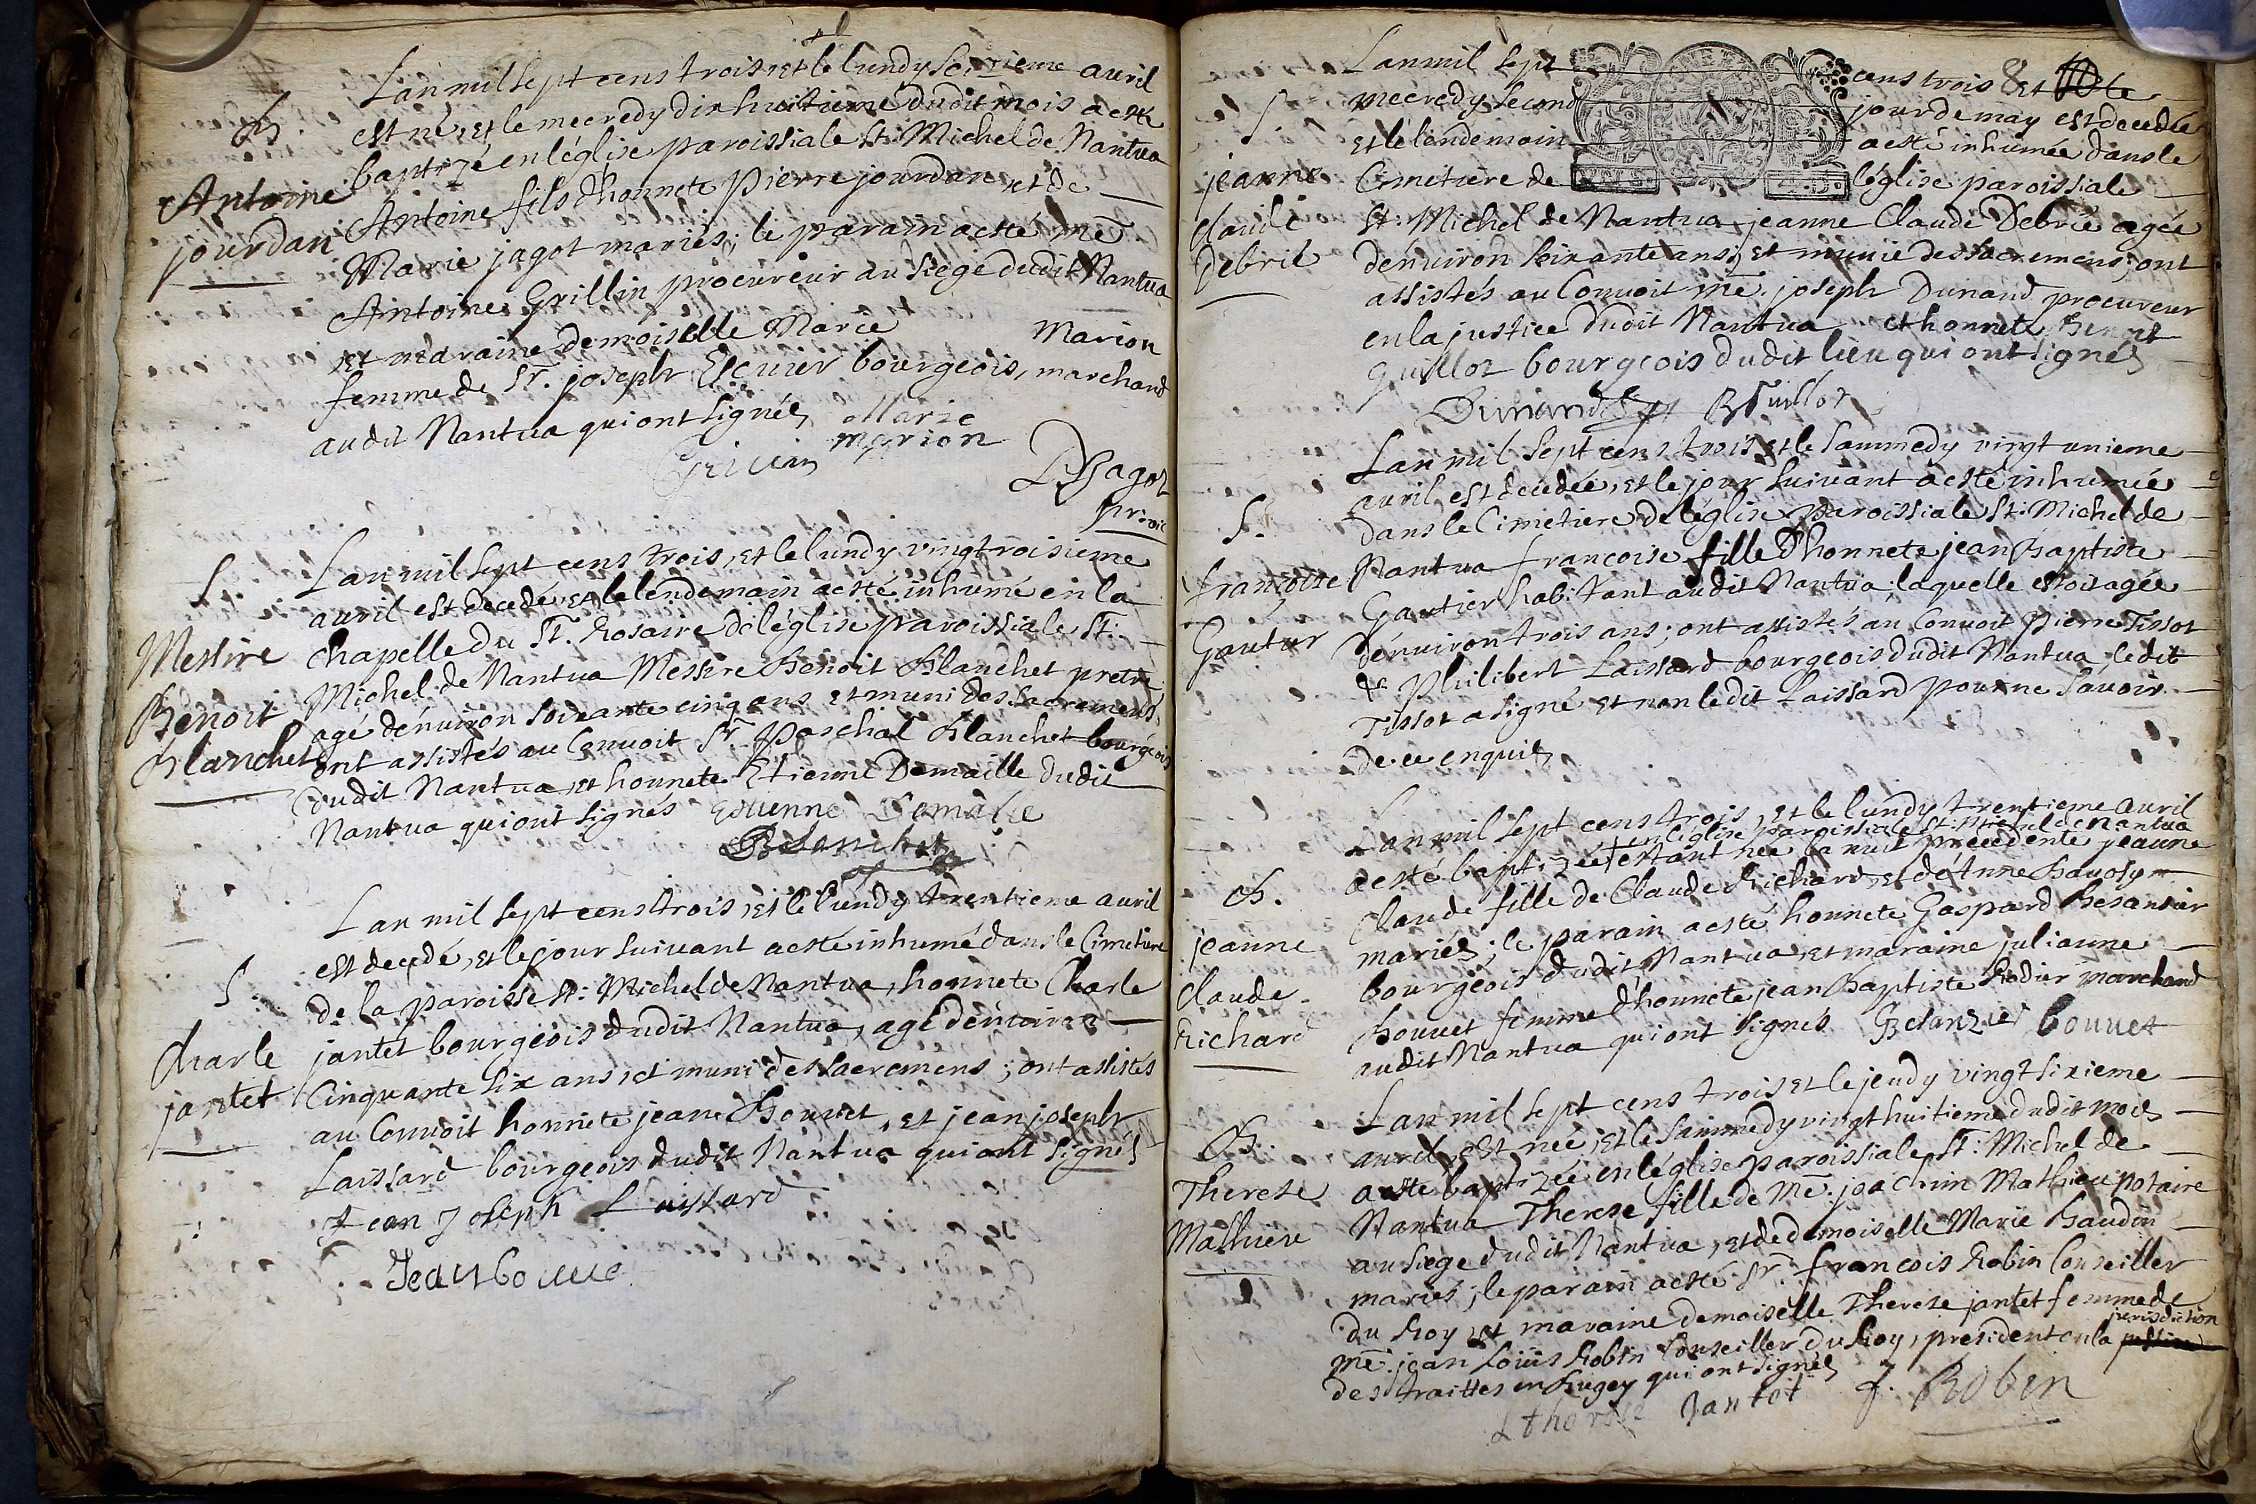 Lan mil sept cens trois, et le lundy seizieme auril
B.
est né, et le mecredy dix huitieme dudit mois a esté
baptizé en léglise paroissiale st: Michel de Nantua
Antoine
jourdan
Antoine fils d'honnete Pierre jourdan, et de
Marie jagot mariés; le parain a esté me
Antoine Grillin procureur au siege dudit Nantua
et maraine demoiselle Marie Marion
femme de sr. joseph Escuier bourgeois, marchand
audit Nantua qui ont signés
Marie
marion
P Jagot
S.
Messire
Benoit
Blanchet
Lan mil sept cens trois, et le lundy vingtroisieme
auril est decedé, et le lendemain a esté inhumé en la
chapelle du st. Rosaire de léglise paroissiale st:
Michel de Nantua Messire Benoit Blanchet pretre
agé dénuiron soixante cinq ans et muni des sacremens,
ont assistés au Conuoit sr Paschal Blanchet bourgeois
dudit Nantua, et honnete Etienne Demaille dudit
Nantua qui ont signés Estienne Demalie
Blanchet
S.
Charle
jantet
Lan mil sept cens trois, et le lundy trentieme auril
est decedé, et le jour suiuant a esté inhumé dans le Cimetiere
de la paroisse st: Michel de Nantua, honnete Charle
jantet bourgeois dudit Nantua, agé dénuiron
Cinquante six ans, et muni des sacremens; ont assistés
au Conuoit honnete jean Bouuet, et jean joseph
Laissard bourgeois dudit Nantua qui ont signés
Jean Joseph Laissard
Jean bouue
8
S.
jeanne
claude
Debrie
Lan mil sept cens trois et le
mecredy second jour de may est decedée
et le lendemain a esté inhumée dans le
Cimetiere de léglise paroissiale
st: Michel de Nantua jeanne Claude Debrie agée
dénuiron soixante ans, et munie des sacremens; ont
assistés au Conuoit me. joseph Dunand procureur
en la justice dudit Nantua et honnete Benoit
Guillot bourgeois dudit lieu qui ont signés
Dunand BGuillot
S.
francoise
Gautier
Lan mil sept cens trois et le sammedy vingt unieme
auril est decedée, et le jour suiuant a esté inhumée
dans le Cimetiere de léglise paroissiale st: Michel de
Nantua francoise fille d'honnete jean Baptiste
Gautier habitant audit Nantua, laquelle estoit agée
dénuiron trois ans; ont assistés au Conuoit Pierre Tissot
et Philibert Laissard bourgeois dudit Nantua, ledit
Tissot a signé et non ledit Laissard pour ne sauoir
de ce enquis
B.
jeanne
claude
Richard
Lan mil sept cens trois, et le lundy trentieme auril
en léglise paroissiale st: Michel de Nantua
a esté baptizée estant née la nuit precedente jeanne
Claude fille de Claude Richard, et d'Anne Bauosy
mariés; le parain a esté honnete Gaspard Besansier
bourgeois dudit Nantua, et maraine julianne
Bouuet femme d'honnete jean Baptiste Rodier marchand
audit Nantua qui ont signés GBesanzier bouuet
B.
Therese
Mathieu
Lan mil sept cens trois et le jeudy vingt sixieme
auril est née, et le sammedy vingt huitieme dudit mois
a esté baptizée en léglise paroissiale st: Michel de
Nantua Therese fille de me. joachim Mathieu notaire
au siege dudit Nantua, et de demoiselle Marie Baudin
mariés; le parain a esté sr. francois Robin Conseiller
du Roy et maraine demoiselle Therese jantet femme de
jurisdiction
me. jean Louis Robin Conseiller du Roy, president en la justice
des traittes en Bugey qui ont signés
therese Jantet J. Robin